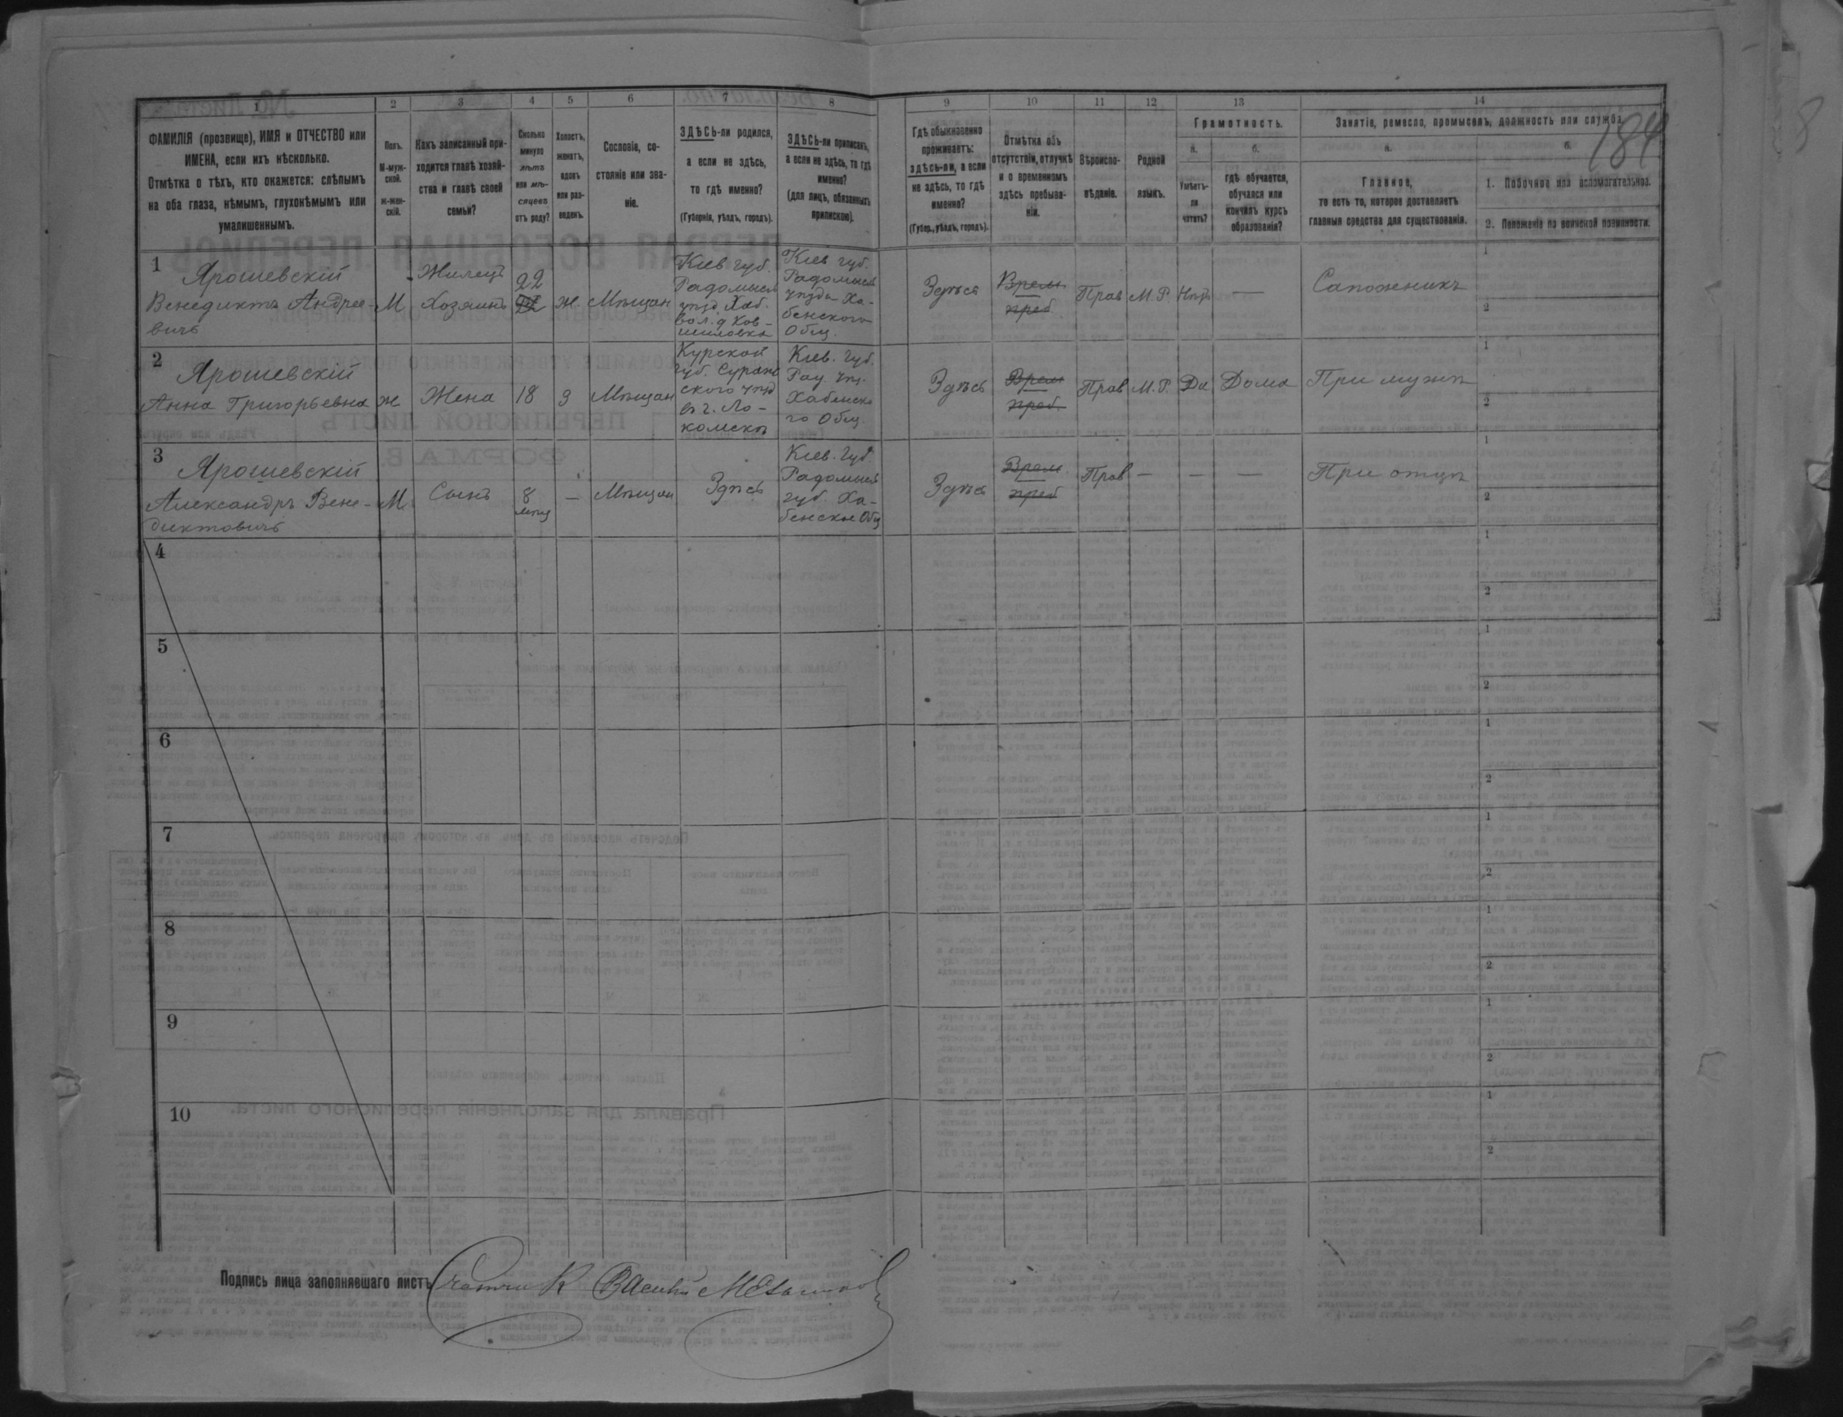 184
1 2 3 4 5 6 7 8 9 10 11 12 13 14
ФАМИЛІЯ (прозвище), ИМЯ и ОТЧЕСТВО или
ИМЕНА, если ихъ нѣсколько.
Отмѣтка о тѣхъ, кто окажется: слѣпымъ
на оба глаза, нѣмымъ, глухонѣмымъ или
умалишеннымъ.
Полъ.
М-муж-
ской.
Ж-жен-
скій.
Какъ записанный при-
ходится главѣ хозяй-
ства и главѣ своей
семьи?
Сколько
минуло
лѣтъ
или мѣ-
сяцевъ
отъ роду?
Холостъ,
женатъ,
вдовъ
или раз-
веденъ.
Сословіе, со-
стояніе или зва-
ніе.
ЗДѢСЬ-ли родился,
а если не здѣсь,
то гдѣ именно?
(Губернія, уѣздъ, городъ).
ЗДѢСЬ-ли приписанъ,
а если не здѣсь, то гдѣ
именно?
(для лицъ, обязанныхъ
припискою).
Гдѣ обыкновенно
проживаетъ:
здѣсь-ли, а если
не здѣсь, то гдѣ
именно?
(Губер., уѣздъ, городъ).
Отмѣтка объ
отсутствіи, отлучкѣ
и о временномъ
здѣсь пребыва-
ніи.
Вѣроиспо-
вѣданіе.
Родной
языкъ.
Грамотность.
а.
Умѣетъ-
ли
читать?
б.
гдѣ обучается,
обучался или
кончилъ курсъ
образованія?
Занятіе, ремесло, промыселъ, должность или служба.
а.
Главное,
то есть то, которое доставляетъ
главныя средства для существованія.
б.
1. Побочное или вспомогательное.
2. Положеніе по воинской повинности.
1
Ярошевскій
Венедиктъ Андрее-
вичъ
М
Жилецъ
Хозяинъ
22
ж
Мѣщан
Кіев. губ.
Радомысл
уѣзд. Хаб.
вол. д
Кіев губ.
Радомысл
уѣзда Ха-
бенского
Общ.
Здѣсь
Врем
преб
Прав
М.Р.
Нѣт
—
Сапожникъ
1
2
2
Ярошевскій
Анна Григорьевна
ж
Жена
18
З
Мѣщан
Курской
губ.
Кіев. губ.
Рад. уѣз.
Хабенско
го Общ.
Здѣсь
Врем
преб.
Прав
М.Р.
Да
Дома
При мужѣ
1
2
3
Ярошевскій
Александръ Вене-
диктовичъ
М
Сынъ
8
мѣсц
—
Мѣщан
Здѣсь
Кіев. губ
Радомысл
губ. Ха-
бенское Общ
Здѣсь
Врем
преб
Прав
—
—
—
При отцѣ
1
2
4
1
2
5
1
2
6
1
2
7
1
2
8
1
2
9
1
2
10
1
2
Подпись лица заполнявшаго листъ
Счетчик Василій